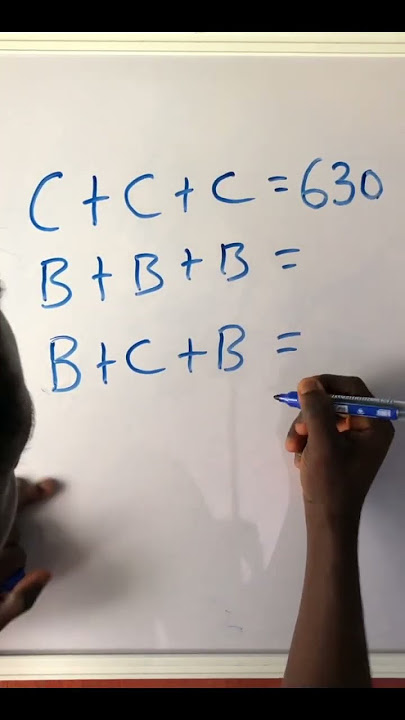 C + C + C = 630
B + B + B =
B + C + B =